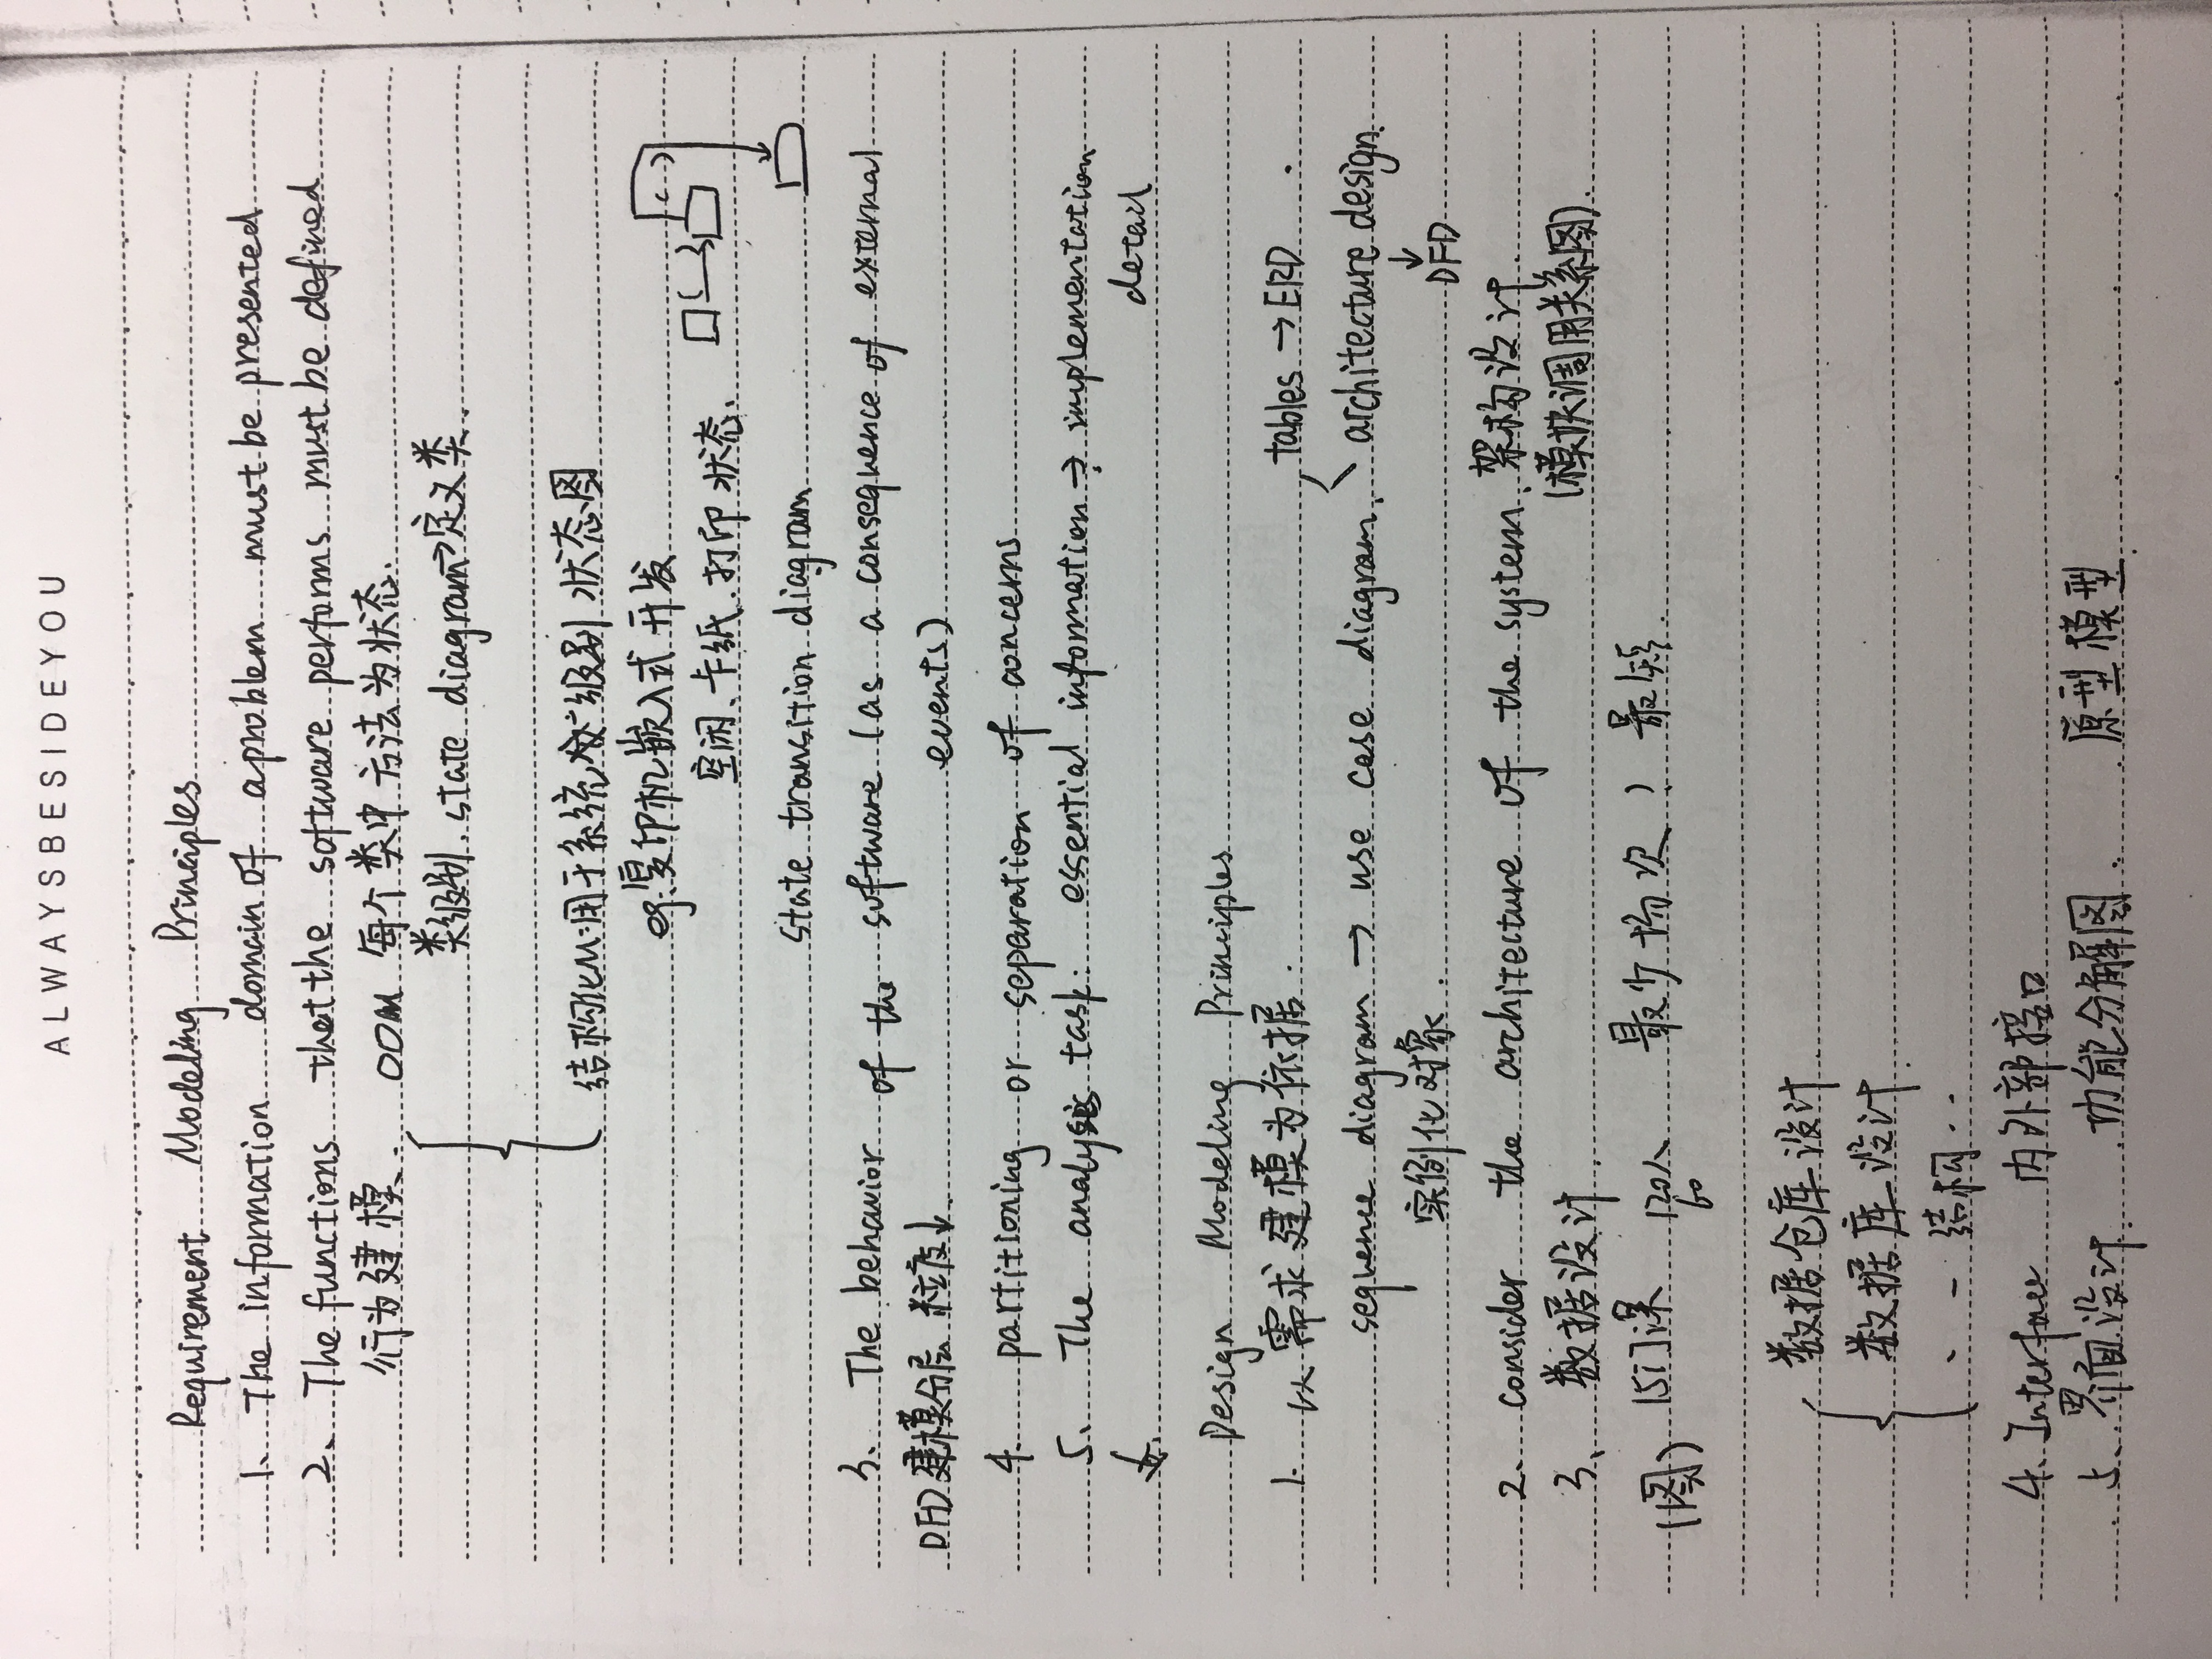 ALWAYSBESIDEYOU
Requirement Modeling Principles
1、The information domain of a problem must be presented
2、The functions that the software performs must be defined
行为建模. OOM 每个类中方法为状态.
类级别.state diagram→定义类.
结构化M:用于系统级别 状态图
eg:复印机嵌入式开发
空闲、卡纸.打印状态.
state transition diagram
3、The behavior of the software (as a consequence of external
DFD建模分层 粒度↓. events)
4. partitioning or separation of concerns
5、The analysis task: essential information → implementation
detail
Design Modeling Principles
1. 以需求建模为依据. tables → ERD
sequence diagram → use case diagram. architecture design.
实例化对象. ↓
DFD
2、consider the architecture of the system.架构设计.
3、数据设计. (模块调用关系图).
(图) 15门课 120人 最少场次 ) 最短.
60
数据仓库设计.
数据库设计.
、 - 结构··
4、Interface 内外部接口
5、界面设计. 功能分解图. 原型模型.